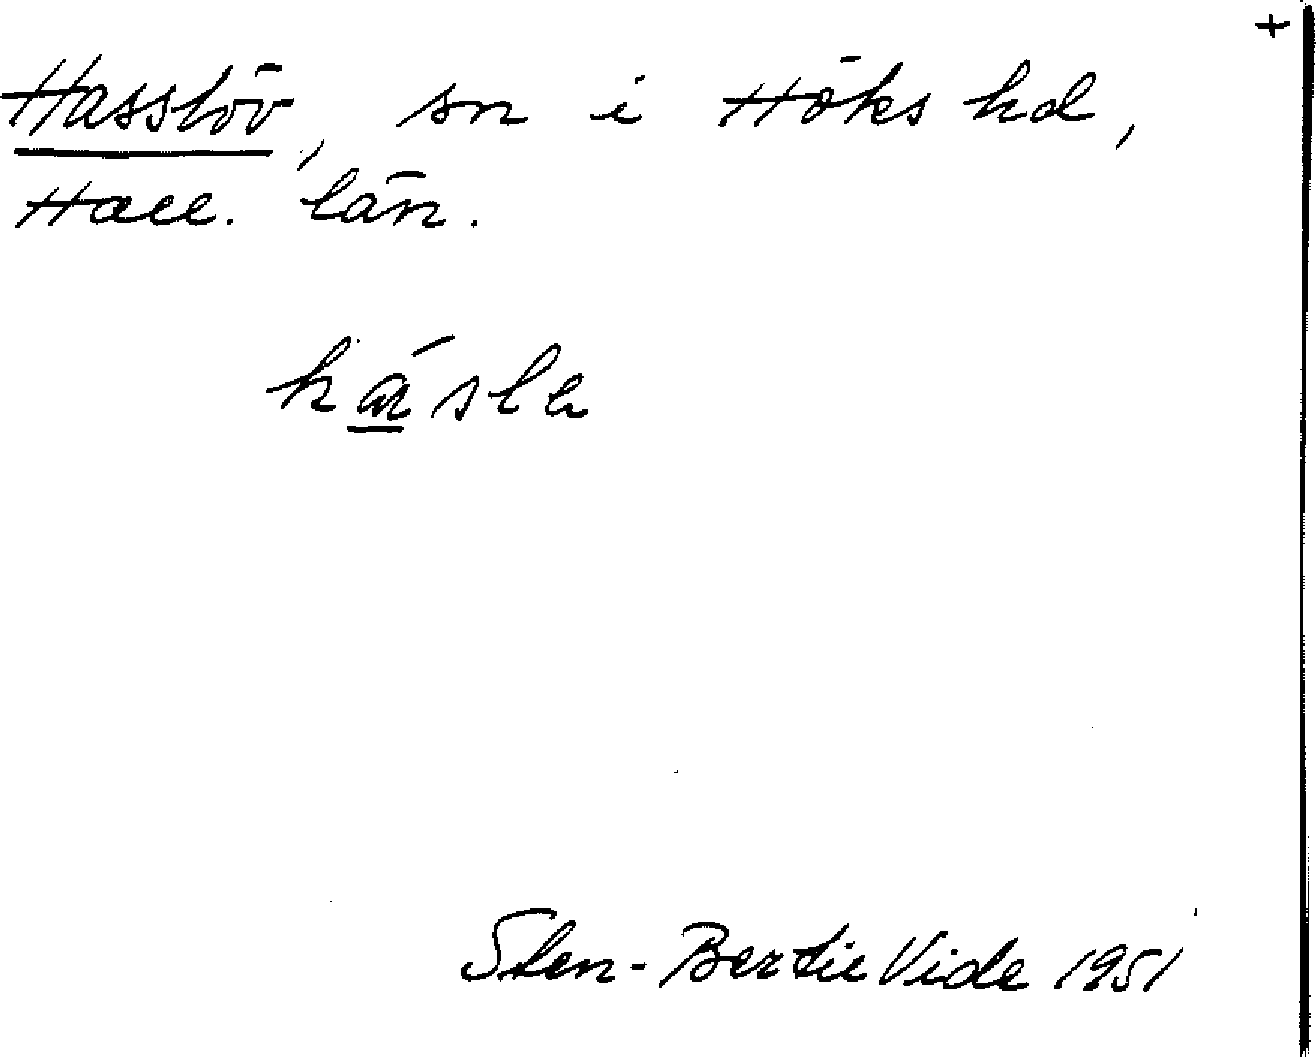 +
Hasslöv, sn i Höks hd,
Hall. län.
Sten-Bertil Vide 1951